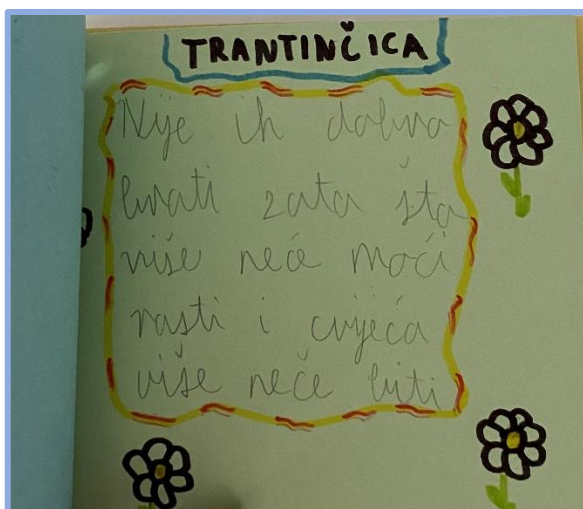 TRANTINČICA
Nije ih dobro
brati zato što
više neće moći
rasti i cvijeća
više neće biti